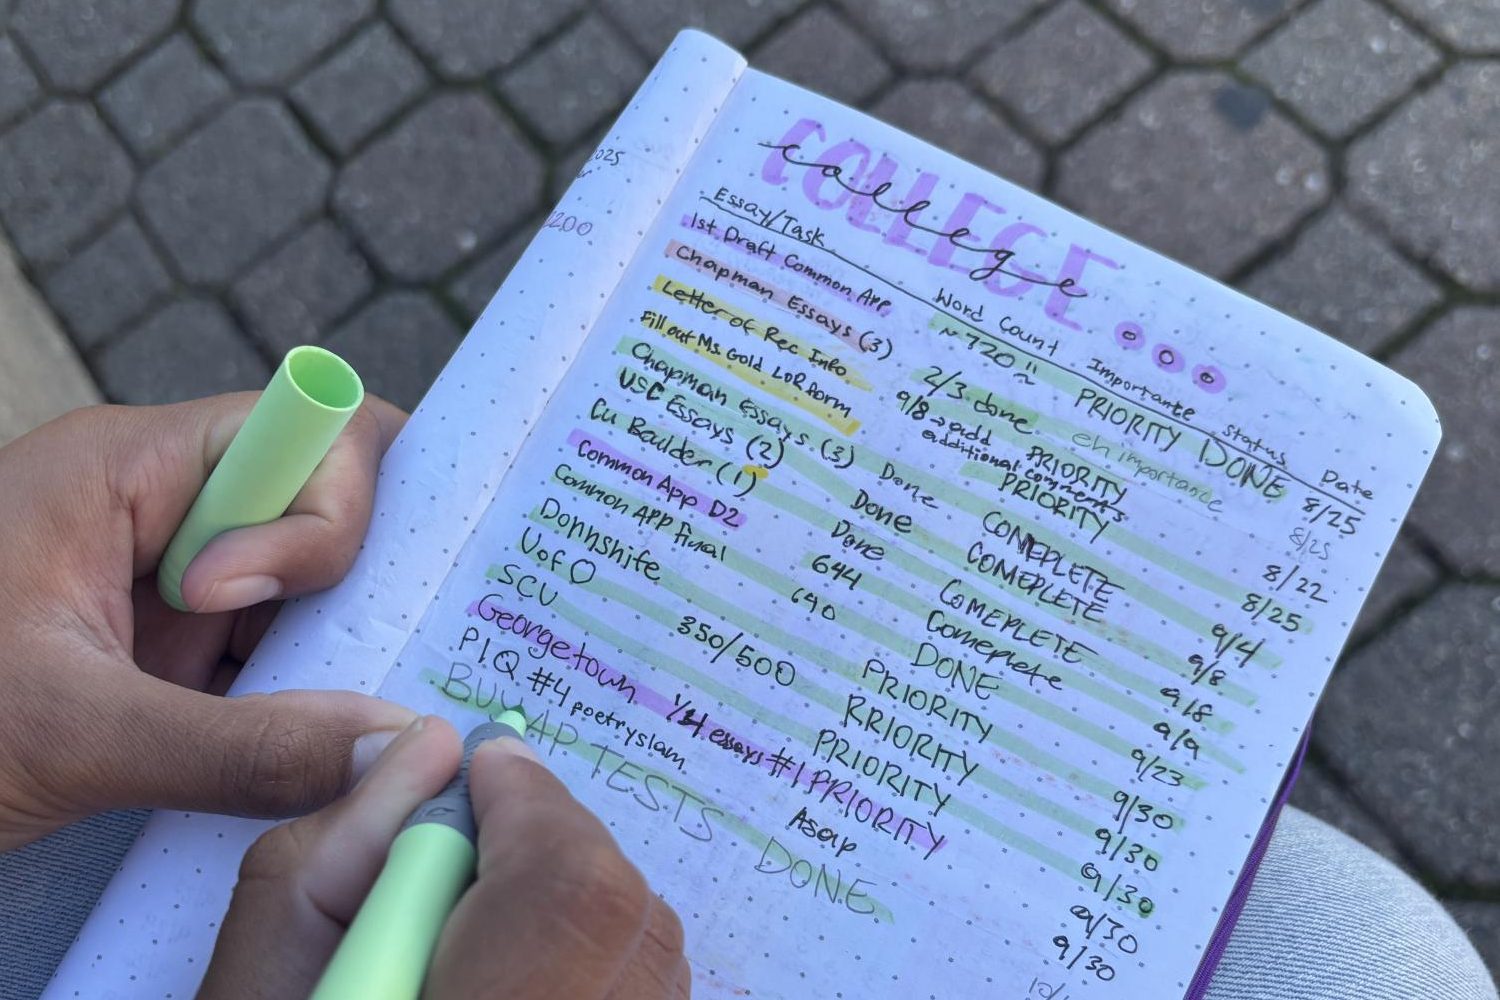 COLLEGE
college
Essay/Task Word Count Importante Status Date
1st Draft Common App ~720~ PRIORITY DONE 8/25
Chapman Essays (3) 2/3 done eh importance 8/25
Letter of Rec Info 9/8 → add additional comments PRIORITY 8/22
Fill out Ms. Gold LOR form PRIORITY 8/25
Chapman Essays (3) Done COMEPLETE 9/4
USC Essays (2) Done COMEPLETE 9/8
CU Boulder (1) Done COMEPLETE 9/8
Common App D2 644 Comeplete 9/9
Common App final 640 DONE 9/23
Dornshife PRIORITY 9/30
UofO 350/500 RRIORITY 9/30
SCU PRIORITY 9/30
Georgetown 1/4 essays #1 PRIORITY 9/30
PIQ #4 poetryslam Asap 9/30
BUY AP TESTS DONE